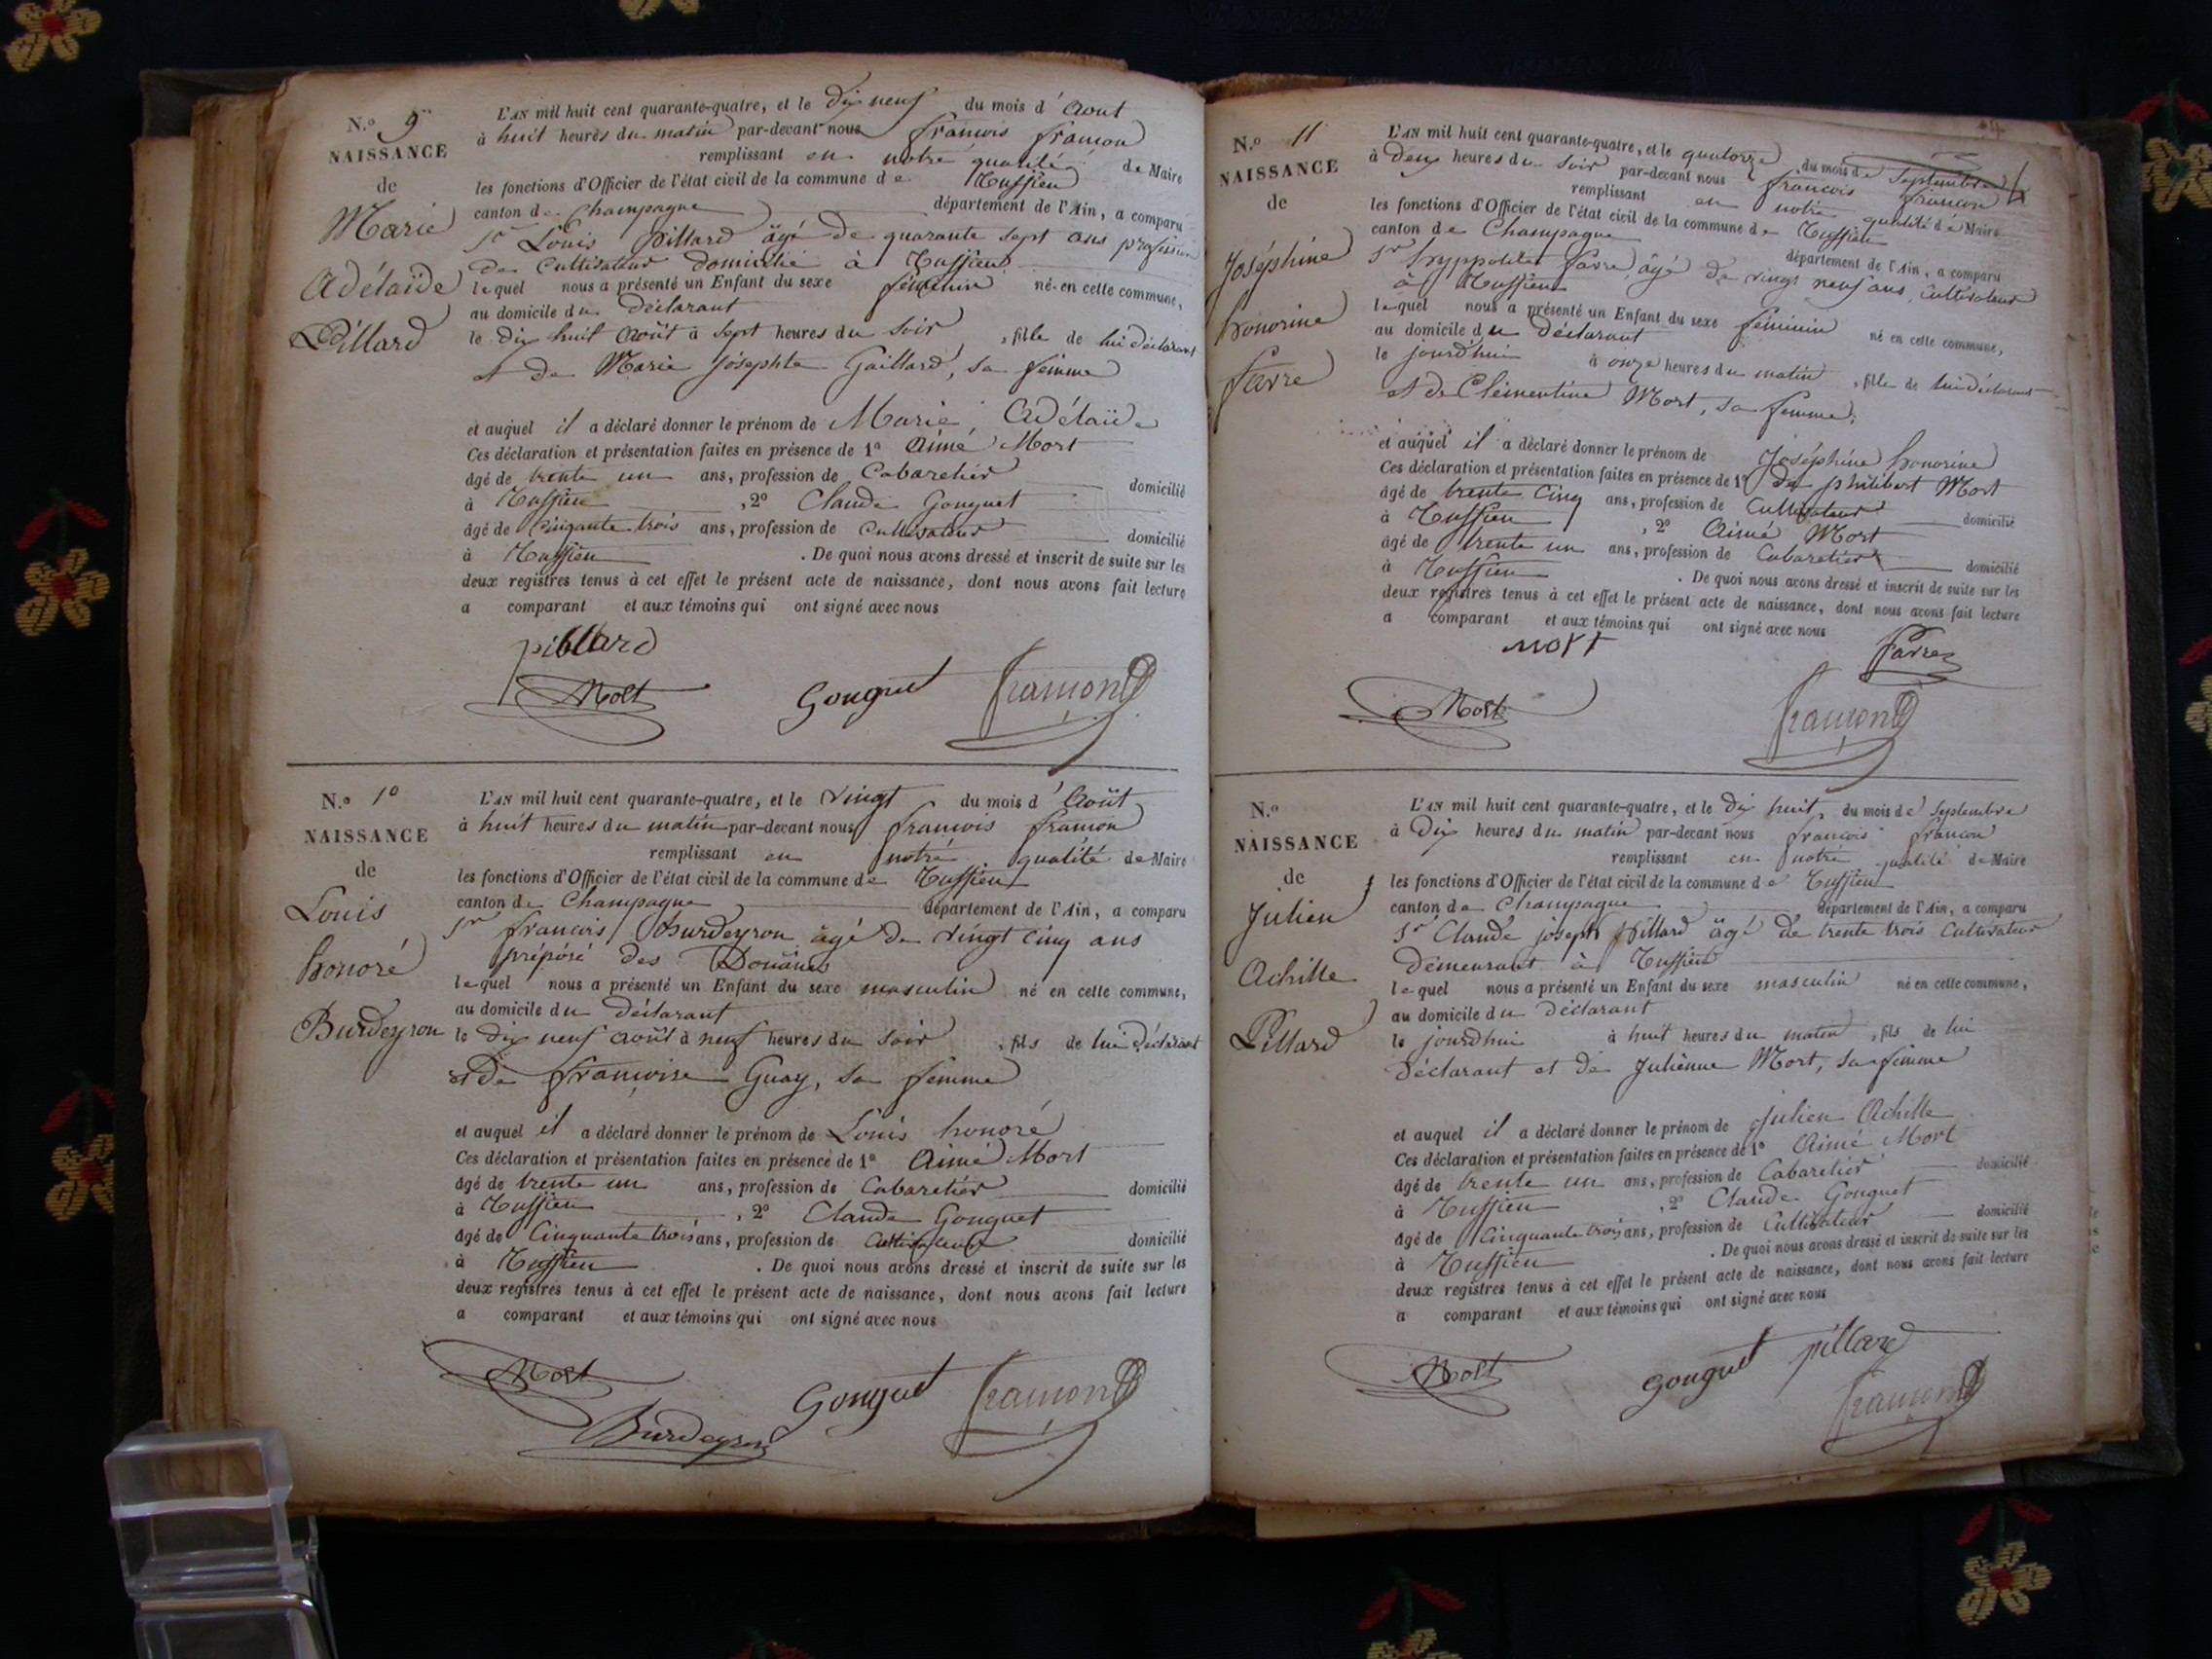 N.o 9
NAISSANCE
de
Marie
Adélaïde
Pillard
L'AN mil huit cent quarante-quatre, et le dix neuf du mois d'Aout
à huit heures du matin par-devant nous françois françon
remplissant en notre qualité de Maire
les fonctions d'Officier de l'état civil de la commune de
canton de Champagne département de l'Ain, a comparu
Sr Louis Pillard âgé de quarante sept ans profession
de Cultivateur domicilié à
lequel nous a présenté un Enfant du sexe féminin né en cette commune,
au domicile du Déclarant
le dix huit Août à sept heures du soir, fille de lui Déclarant
et de Marie Josephte Gaillard, sa femme
et auquel il a déclaré donner le prénom de Marie, Adélaïde
Ces déclaration et présentation faites en présence de 1o Aimé Mort
âgé de trente un ans, profession de Cabaretier domicilié
à , 2o Claude Gonguet
âgé de Cinquante trois ans, profession de Cultivateur domicilié
à . De quoi nous avons dressé et inscrit de suite sur les
deux registres tenus à cet effet le présent acte de naissance, dont nous avons fait lecture
a comparant et aux témoins qui ont signé avec nous
pillard
Mort Gonguet françon
N.o 10
NAISSANCE
de
Louis
honoré
Burdeyron
L'AN mil huit cent quarante-quatre, et le vingt du mois d'Août
à huit heures du matin par-devant nous françois françon
remplissant en notre qualité de Maire
les fonctions d'Officier de l'état civil de la commune de
canton de Champagne département de l'Ain, a comparu
Sr françois Burdeyron âgé de vingt cinq ans
préposé des Douânes
lequel nous a présenté un Enfant du sexe masculin né en cette commune,
au domicile du Déclarant
le dix neuf août à neuf heures du soir, fils de lui Déclarant
et de françoise Guay, sa femme
et auquel il a déclaré donner le prénom de Louis honoré
Ces déclaration et présentation faites en présence de 1o Aimé Mort
âgé de trente un ans, profession de Cabaretier domicilié
à , 2o Claude Gonguet
âgé de Cinquante trois ans, profession de Cultivateur domicilié
à . De quoi nous avons dressé et inscrit de suite sur les
deux registres tenus à cet effet le présent acte de naissance, dont nous avons fait lecture
a comparant et aux témoins qui ont signé avec nous
Mort Gonguet françon
Burdeyron
N.o 11
NAISSANCE
de
Joséphine
honorine
favre
L'AN mil huit cent quarante-quatre, et le quatorze du mois de Septembre
à deux heures du soir par-devant nous françois françon
remplissant en notre qualité de Maire
les fonctions d'Officier de l'état civil de la commune de
canton de Champagne département de l'Ain, a comparu
Sr hyppolite favre, âgé de vingt neuf ans, Cultivateur
à
lequel nous a présenté un Enfant du sexe féminin né en cette commune,
au domicile du Déclarant
le jourd'hui à onze heures du matin, fille de lui Déclarant
et de Clémentine Mort, sa femme,
et auquel il a déclaré donner le prénom de Joséphine honorine
Ces déclaration et présentation faites en présence de 1o philibert Mort
âgé de trente cinq ans, profession de Cultivateur domicilié
à , 2o Aimé Mort
âgé de trente un ans, profession de Cabaretier domicilié
à . De quoi nous avons dressé et inscrit de suite sur les
deux registres tenus à cet effet le présent acte de naissance, dont nous avons fait lecture
a comparant et aux témoins qui ont signé avec nous
mort favre
Mort françon
N.o
NAISSANCE
de
Julien
Achille
Pillard
L'AN mil huit cent quarante-quatre, et le dix huit du mois de Septembre
à dix heures du matin par-devant nous françois françon
remplissant en notre qualité de Maire
les fonctions d'Officier de l'état civil de la commune de
canton de Champagne département de l'Ain, a comparu
Sr Claude joseph Pillard âgé de trente trois Cultivateur
Demeurant à
lequel nous a présenté un Enfant du sexe masculin né en cette commune,
au domicile du Déclarant
le jourdhui à huit heures du matin, fils de lui
déclarant et de Julienne Mort, sa femme
et auquel il a déclaré donner le prénom de Julien Achille
Ces déclaration et présentation faites en présence de 1o Aimé Mort
âgé de trente un ans, profession de Cabaretier domicilié
à , 2o Claude Gonguet
âgé de Cinquante trois ans, profession de Cultivateur domicilié
à . De quoi nous avons dressé et inscrit de suite sur les
deux registres tenus à cet effet le présent acte de naissance, dont nous avons fait lecture
a comparant et aux témoins qui ont signé avec nous
Mort Gonguet pillard
françon